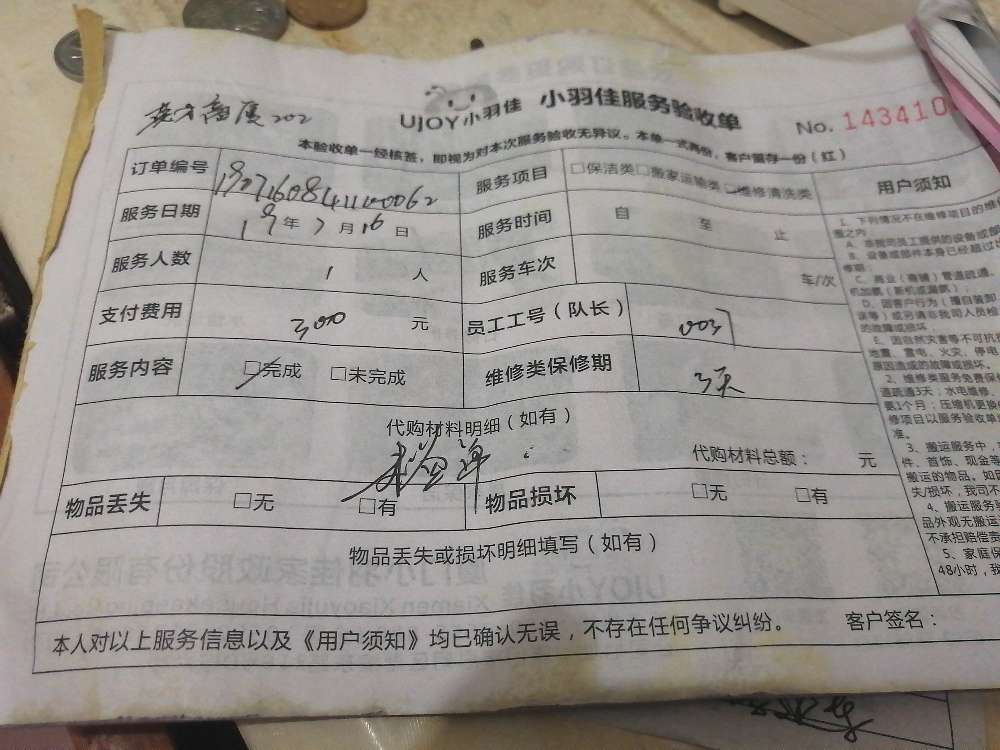 UJOY小羽佳 小羽佳服务验收单
No. 143410
202
本验收单一经核签，即视为对本次服务验收无异议。本单一式两份，客户留存一份（红）
订单编号 服务项目 □保洁类 □搬家运输类 □维修清洗类 用户须知
服务日期 19年7月16日 服务时间 自 至 止
服务人数 1 人 服务车次 车/次
支付费用 300 元 员工工号（队长） 0037
服务内容 □完成 □未完成 维修类保修期 3天
代购材料明细（如有）
代购材料总额： 元
物品丢失 □无 □有 物品损坏 □无 □有
物品丢失或损坏明细填写（如有）
本人对以上服务信息以及《用户须知》均已确认无误，不存在任何争议纠纷。 客户签名：
1、下列情况不在维修项目的维
A、非我司员工提供的设备或部
B、设备或部件本身已经超过
C、商业（商铺）管道疏通、
D、因客户行为（擅自装卸
的故障或损坏
E、因自然灾害等不可抗
地震、雷电、火灾、停电
原因造成的故障或损坏.
2、维修类服务免费保
道疏通3天；水电维修、
更1个月；压缩机更换
修项目以服务验收单
准。
3、搬运服务中，
件、首饰、现金等
搬运的物品。如因
失/损坏，我司不
4、搬运服务验
品外观无搬运
不承担赔偿责
5、家庭保
48小时，我